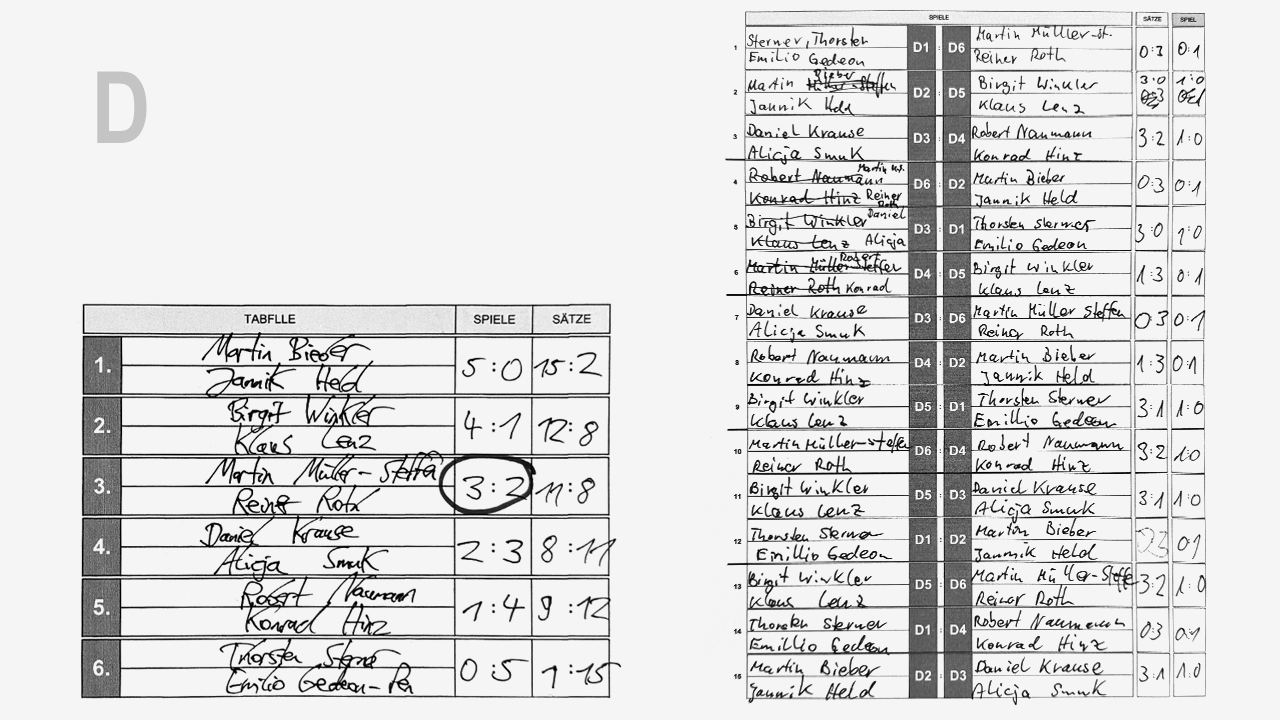 D
TABELLE SPIELE SÄTZE
1. Martin Bieber
Jannik Held 5:0 15:2
2. Birgit Winkler
Klaus Lenz 4:1 12:8
3. Martin Müller-Steffen
Reiner Roth 3:2 11:8
4. Daniel Krause
Alicja Smuk 2:3 8:11
5. Robert Naumann
Konrad Hinz 1:4 9:12
6. Thorsten Sterner
Emilio Gedeon-Per 0:5 1:15
SPIELE SÄTZE SPIEL
1 Sterner, Thorsten D1 : D6 Martin Müller-St. 0:3 0:1
Emilio Gedeon Reiner Roth
2 Martin Bieber D2 : D5 Birgit Winkler 3:0 1:0
Jannik Held Klaus Lenz
3 Daniel Krause D3 : D4 Robert Naumann 3:2 1:0
Alicja Smuk Konrad Hinz
4 Robert Naumann Martin M.S. D6 : D2 Martin Bieber 0:3 0:1
Konrad Hinz Reiner Roth Jannik Held
5 Birgit Winkler Daniel D3 : D1 Thorsten Sterner 3:0 1:0
Klaus Lenz Alicja Emilio Gedeon
6 Martin Müller-Steffen Robert D4 : D5 Birgit Winkler 1:3 0:1
Reiner Roth Konrad Klaus Lenz
7 Daniel Krause D3 : D6 Martin Müller Steffen 0:3 0:1
Alicja Smuk Reiner Roth
8 Robert Naumann D4 : D2 Martin Bieber 1:3 0:1
Konrad Hinz Jannik Held
9 Birgit Winkler D5 : D1 Thorsten Sterner 3:1 1:0
Klaus Lenz Emillio Gedeon
10 Martin Müller-Steffen D6 : D4 Robert Naumann 3:2 1:0
Reiner Roth Konrad Hinz
11 Birgit Winkler D5 : D3 Daniel Krause 3:1 1:0
Klaus Lenz Alicja Smuk
12 Thorsten Sterner D1 : D2 Martin Bieber 0:3 0:1
Emillio Gedeon Jannik Held
13 Birgit Winkler D5 : D6 Martin Müller-Steffen 3:2 1:0
Klaus Lenz Reiner Roth
14 Thorsten Sterner D1 : D4 Robert Naumann 0:3 0:1
Emillio Gedeon Konrad Hinz
15 Martin Bieber D2 : D3 Daniel Krause 3:1 1:0
Jannik Held Alicja Smuk